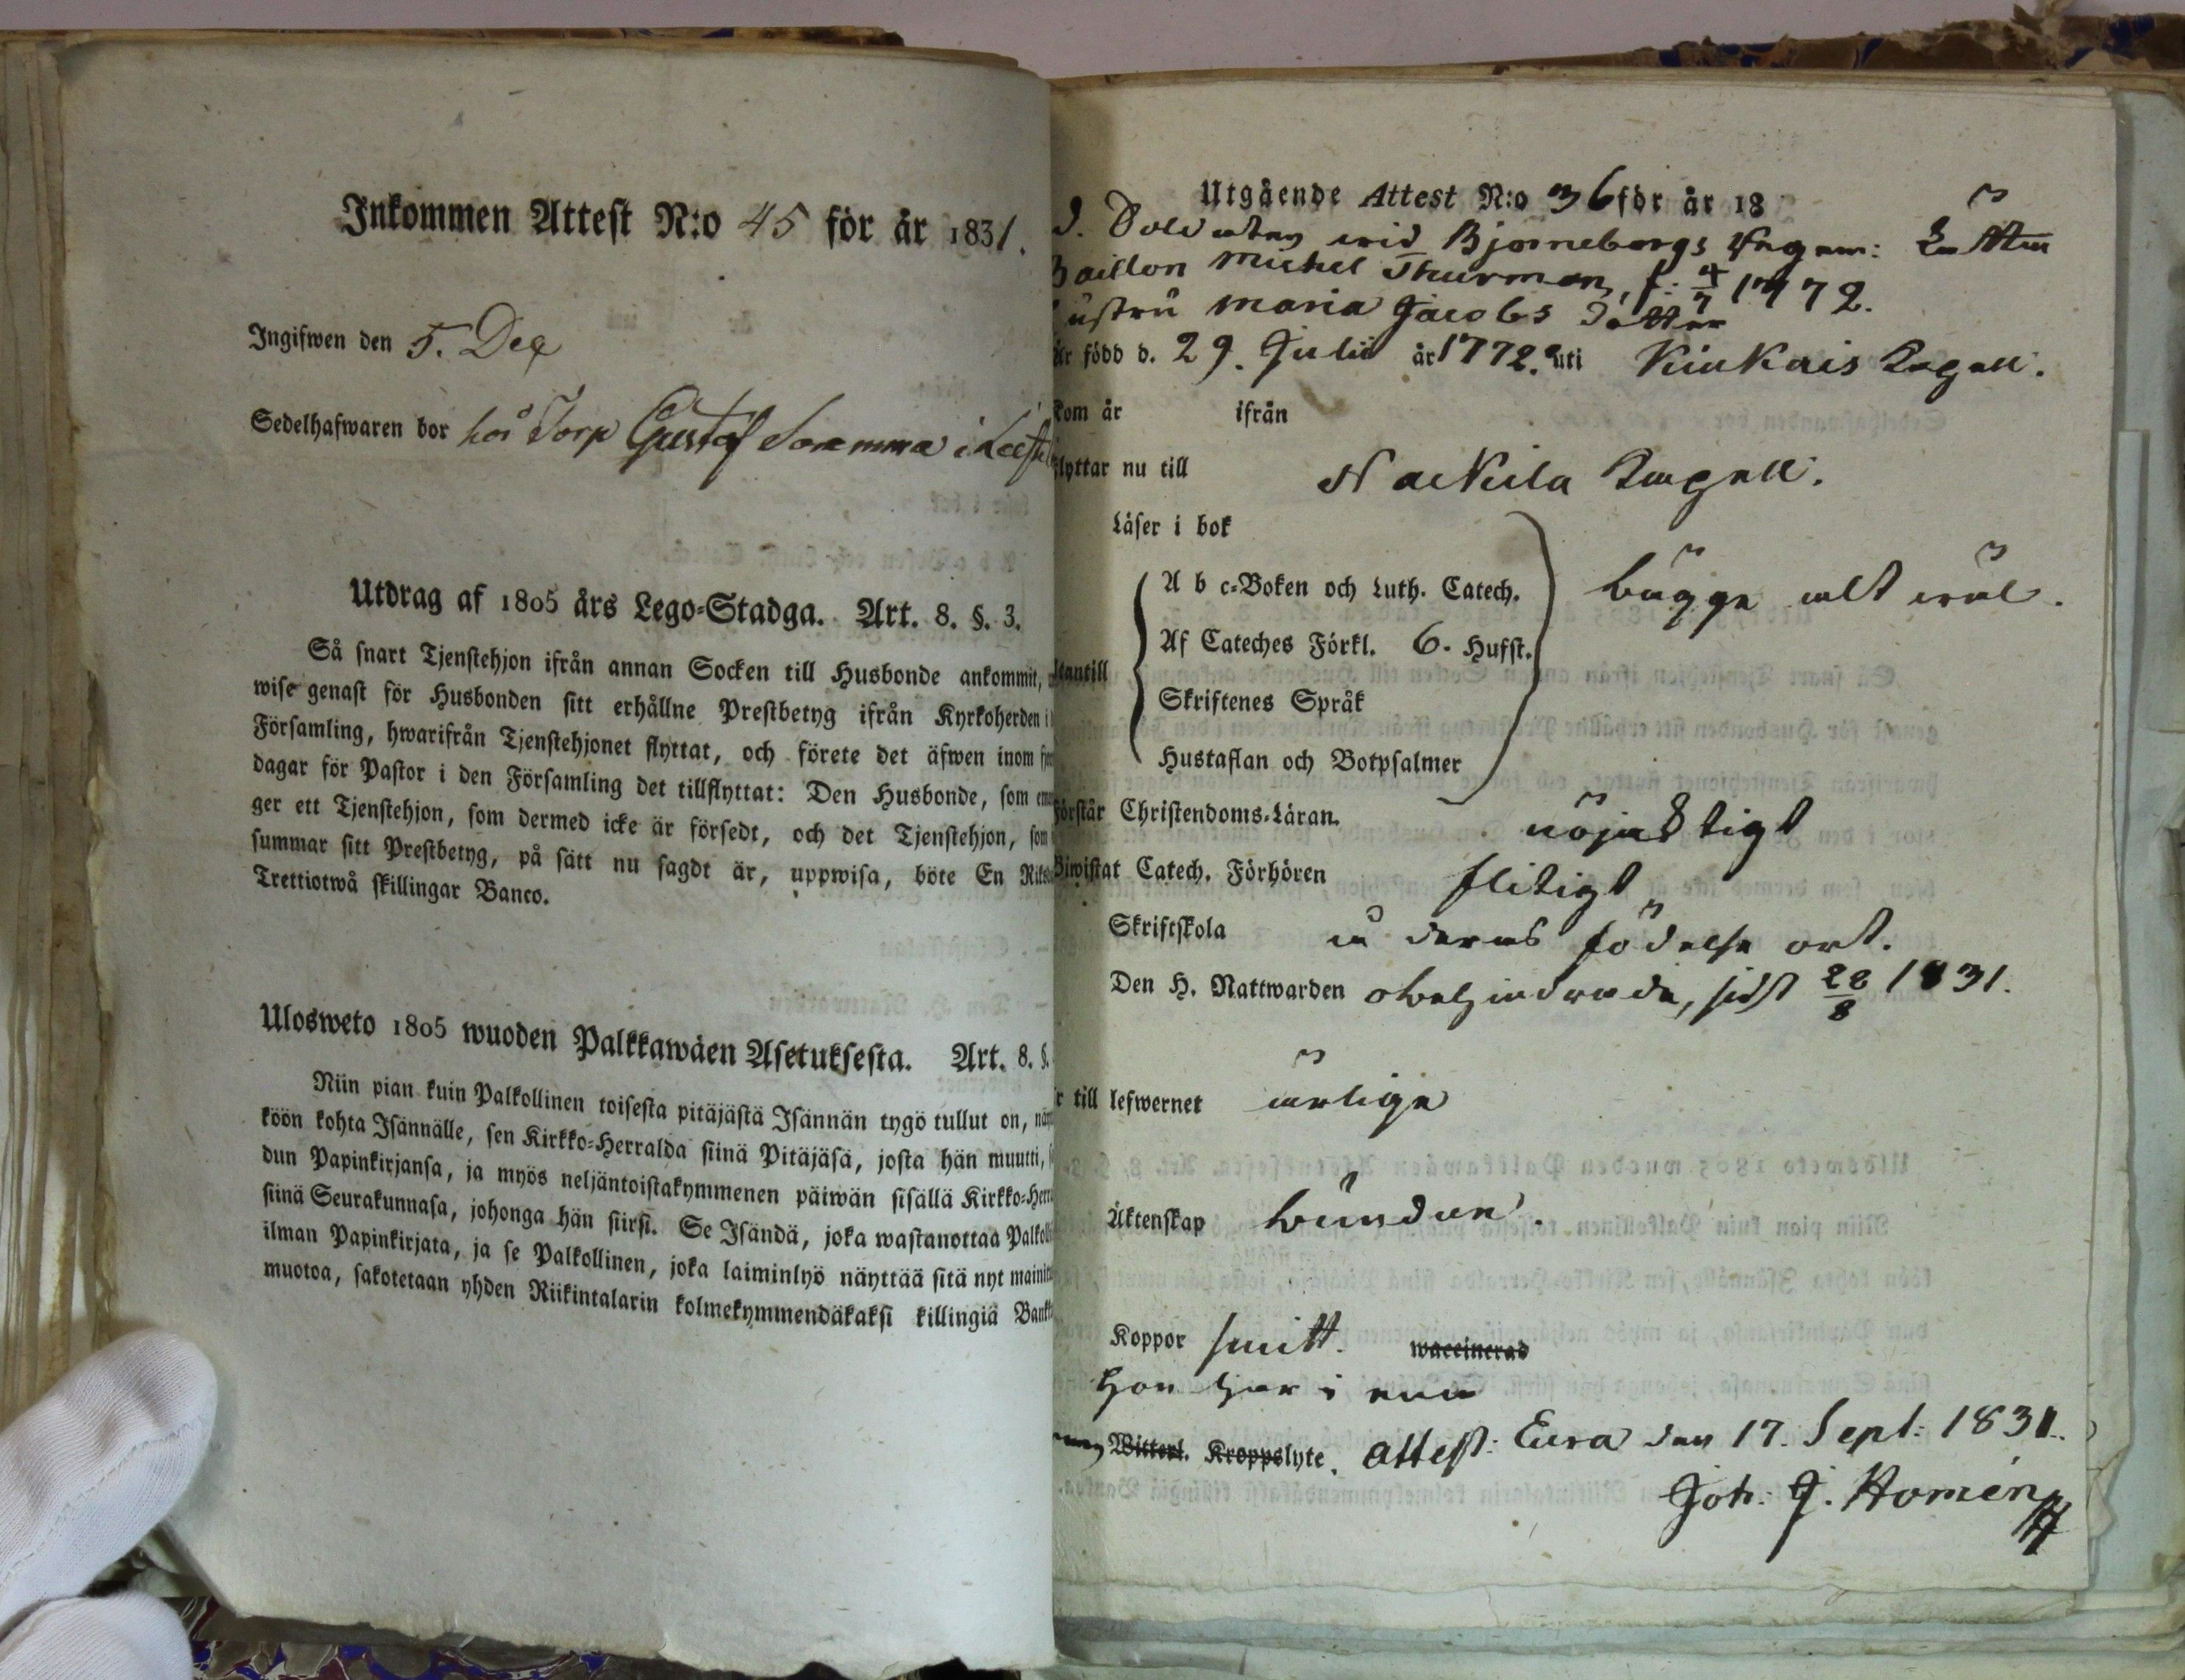 Inkommen Attest N:o 45 för år 1831.
Ingifwen den 5. Dec
Sedelhafwaren bor hos Torp Gustaf Soramma i
Utdrag af 1805 års Lego-Stadga. Art. 8. §. 3.
Så snart Tjenstehjon ifrån annan Socken till Husbonde ankommit,
wise genast för Husbonden sitt erhållne Prestbetyg ifrån Kyrkoherden i
Församling, hwarifrån Tjenstehjonet flyttat, och förete det äfwen inom
dagar för Pastor i den Församling det tillflyttat: Den Husbonde, som
ger ett Tjenstehjon, som dermed icke är försedt, och det Tjenstehjon, som
summar sitt Prestbetyg, på sätt nu sagdt är, uppwisa, böte En
Trettiotwå skillingar Banco.
Ulosweto 1805 wuoden Palkkawäen Asetuksesta. Art. 8. §.
Niin pian kuin Palkollinen toisesta pitäjästä Isännän tygö tullut on,
köön kohta Isännälle, sen Kirkko-Herralda siinä Pitäjäsä, josta hän muutti,
dun Papinkirjansa, ja myös neljäntoistakymmenen päiwän sisällä Kirkko-
siinä Seurakunnasa, johonga hän siirsi. Se Isändä, joka wastanottaa
ilman Papinkirjata, ja se Palkollinen, joka laiminlyö näyttää sitä nyt
muotoa, sakotetaan yhden Riikintalarin kolmekymmendäkaksi killingiä
Utgående Attest N:o 36 för år 18
d. Soldaten wid Björneborgs Regem: Lätta
Michel Thurman, f. 4/7 1772.
Hustru Maria Jacobs dotter
är född d. 29. Julii år 1772. uti Kiukais Capell.
kom år ifrån
flyttar nu till Nackila Capell.
Läser i bok
A b c-Boken och Luth. Catech. bägge alt wäl.
Af Cateches Förkl. 6. Hufst.
Utantill
Skriftenes Språk
Hustaflan och Botpsalmer
Förstår Christendoms-Läran. nöjaktigt
Biwistat Catech. Förhören flitigt
Skriftskola å deras födelse ort.
Den H. Nattwarden obehindrade, sidst 28/8 1831.
r till lefwernet ärlige
Äktenskap bundne.
Koppor haft. waccinerad
Hon har i
Witterl. Kroppslyte. Attest: Eura den 17. Sept: 1831.
Joh: J. Homén